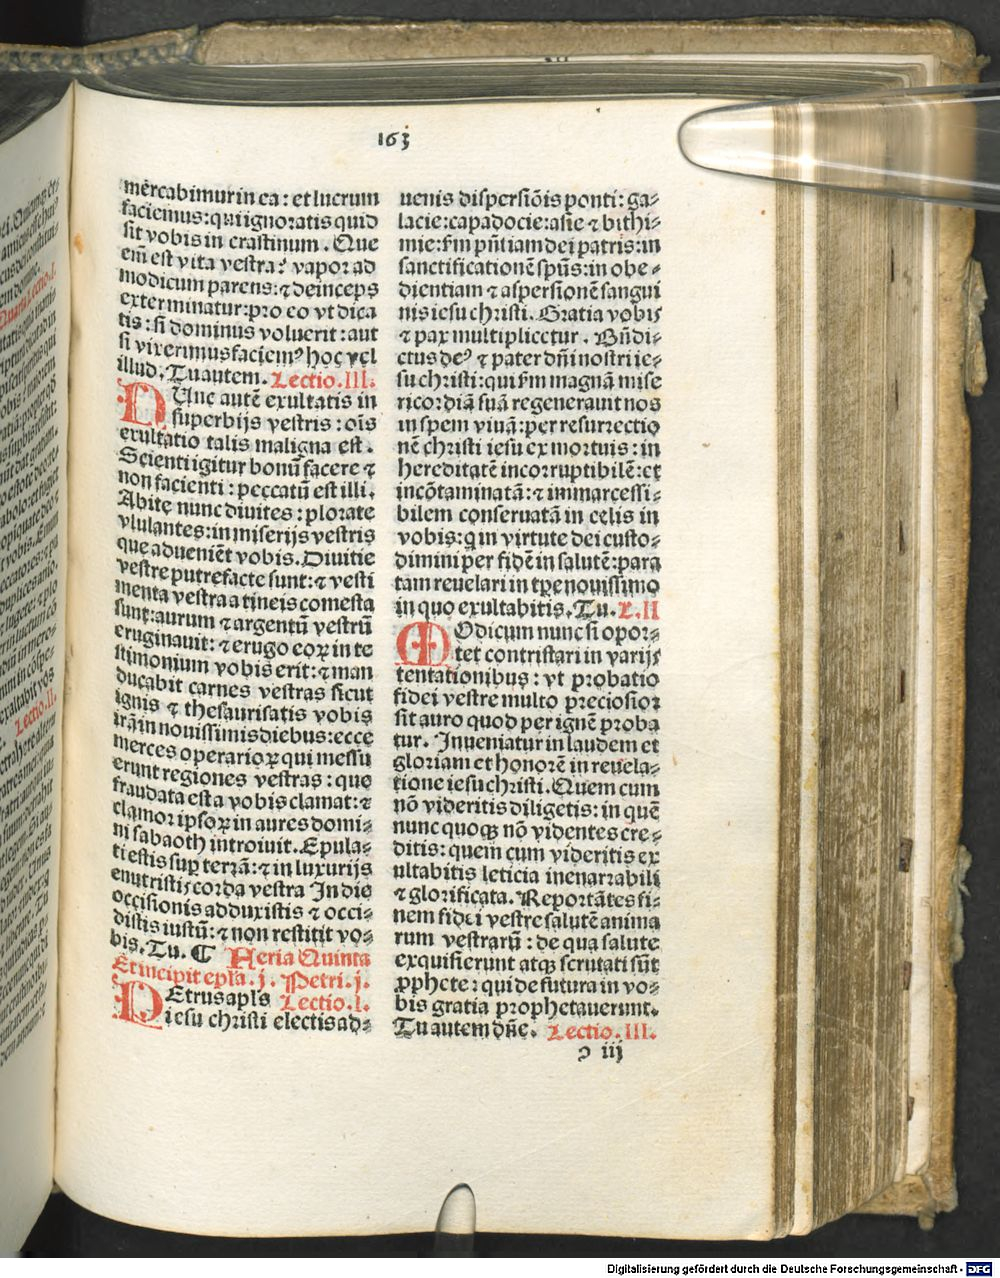 163
mẽrcabimur in ea: et lucrum
faciemus: qui ignoratis quid
sit vobis in crastinum. Que
em̃ est vita vestra? vapor ad
modicum parens: ⁊ deinceps
exterminatur: pro eo vt dica
tis: si dominus voluerit: aut
si vixerimus faciemꝰ hoc vel
illud. Tu autem. Lectio. III.
NUnc autẽ exultatis in
superbijs vestris: oĩs
exultatio talis maligna est.
Scienti igitur bonũ facere ⁊
non facienti: peccatũ est illi.
Abite nunc diuites: plorate
vlulantes: in miserijs vestris
que adueniẽt vobis. Diuitie
vestre putrefacte sunt: ⁊ vesti
menta vestra a tineis comesta
sunt: aurum ⁊ argentũ vestrũ
eruginauit: ⁊ erugo eoꝝ in te
stimonium vobis erit: ⁊ man
ducabit carnes vestras sicut
ignis ⁊ thesaurisatis vobis
irã in nouissimis diebus: ecce
merces operarioꝝ qui messu
erunt regiones vestras: que
fraudata est a vobis clamat: ⁊
clamor ipsoꝝ in aures domi⸗
ni sabaoth introiuit. Epula⸗
ti estis sup̱ terrã: ⁊ in luxurijs
enutristis corda vestra In die
occisionis adduxistis ⁊ occi⸗
distis iustũ: ⁊ non restitit vo⸗
bis. Tu. ¶ Feria Quinta
Et incipit epl̃a. j. Petri. j.
PEtrus apl̃s Lectio. I.
iesu christi electis ad⸗
uenis dispersiõis ponti: ga⸗
lacie: capadocie: asie ⁊ bithi⸗
mie: ẜm pñtiam dei patris: in
sanctificationẽ spũs: in obe⸗
dientiam ⁊ aspersionẽ sangui
nis iesu christi. Gratia vobis
⁊ pax multiplicetur. Bñdi⸗
ctus deꝰ ⁊ pater dñi nostri ie⸗
su christi: qui ẜm magnã mise
ricordiã suã regenerauit nos
in spem viuã: per resurrectio
nẽ christi iesu ex mortuis: in
hereditatẽ incorruptibilẽ: et
incõtaminatã: ⁊ immarcessi⸗
bilem conseruatã in celis in
vobis: q in virtute dei custo⸗
dimini per fidẽ in salutẽ: para
tam reuelari in tp̱e nouissimo
in quo exultabitis. Tu. L. II
MOdicum nunc si opor⸗
tet contristari in varijs
tentationibus: vt probatio
fidei vestre multo preciosior
sit auro quod per ignẽ proba
tur. Inueniatur in laudem et
gloriam et honorẽ in reuela⸗
tione iesu christi. Quem cum
nõ videritis diligetis: in quẽ
nunc quoqꝫ nõ videntes cre⸗
ditis: quem cum videritis ex
ultabitis leticia inenarrabili
⁊ glorificata. Reportãtes fi⸗
nem fidei vestre salutẽ anima
rum vestrarũ: de qua salute
exquisierunt atqꝫ scrutati sũt
ꝓphete: qui de futura in vo⸗
bis gratia prophetauerunt.
Tu autem dñe. Lectio. III.
ꝯ iij
Lectio. I.
Quarta
Lectio. II.
Digitalisierung gefördert durch die Deutsche Forschungsgemeinschaft - DFG